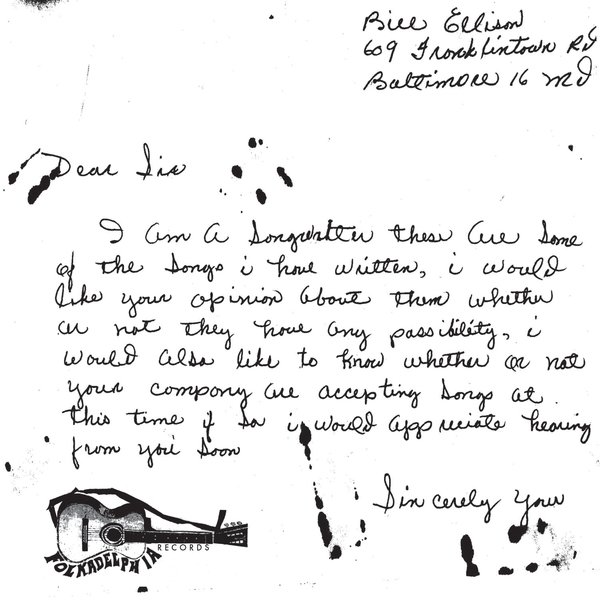 Bill Ellison
609 Franklintown Rd
Baltimore 16 Md
Dear Sir
I am a Songwritter these are some
of the songs i have written, i would
like your opinion about them whether
or not they have any possibility, i
would also like to know whether or not
your company are accepting songs at
this time if so i would appreciate hearing
from you soon
Sincerely Your
FOLKADELPHIA
RECORDS